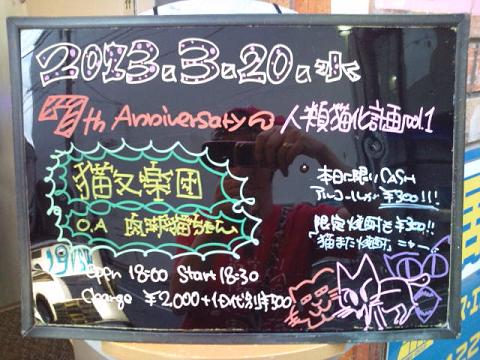 2013.3.20.水
7th Anniversaryの 人類猫化計画vol.1
猫又楽団
O.A 良野猫ちゃん
本日に限り CASH
アルコールが ¥300!!!
限定焼酎も¥300!!
猫また焼酎。ニャー
Open 18:00 Start 18:30
Charge ¥2000+1D代別¥500